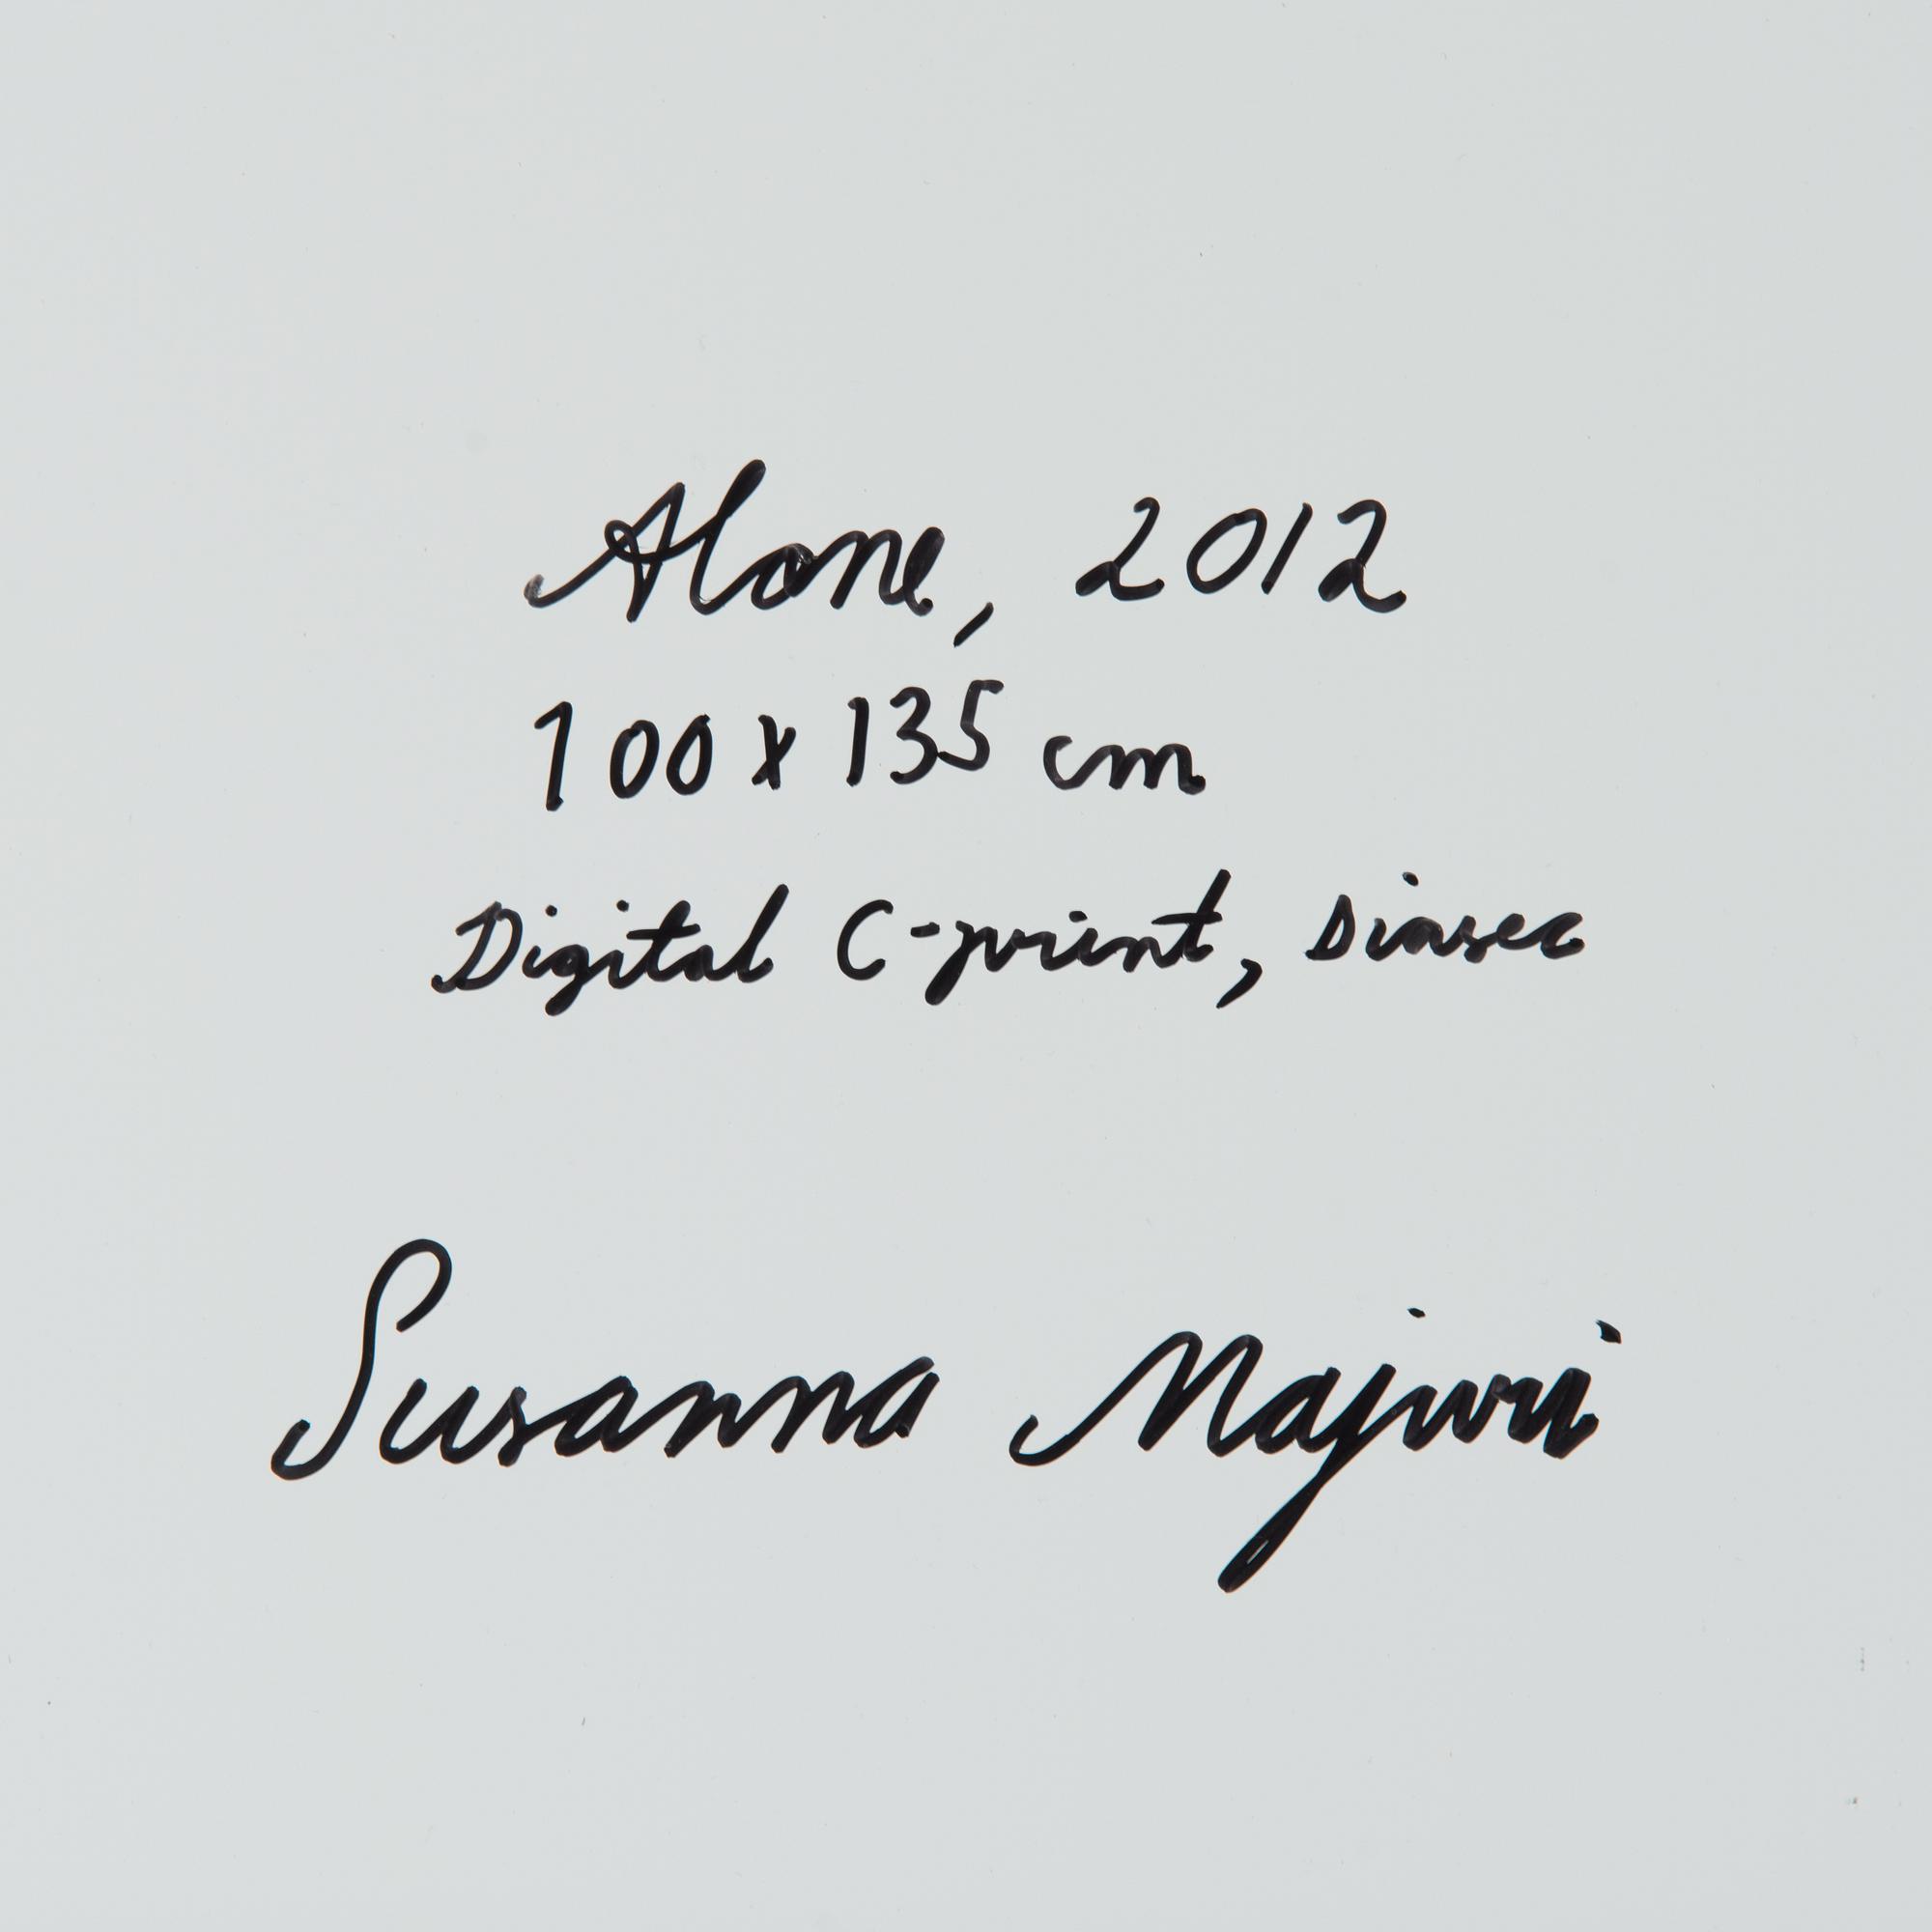 Alone, 2012
100 x 135 cm
Digital C-print, Diasec
Susanna Majuri